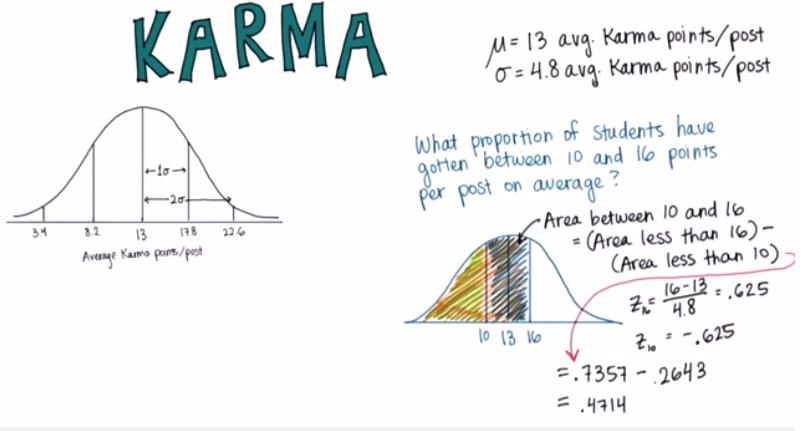 KARMA
μ = 13 avg. Karma points/post
σ = 4.8 avg. Karma points/post
←1σ→
←2σ→
3.4 8.2 13 17.8 22.6
Average Karma points/post
What proportion of students have
gotten between 10 and 16 points
per post on average?
Area between 10 and 16
= (Area less than 16) -
(Area less than 10)
10 13 16
Z₁₆ = 16-13/4.8 = .625
Z₁₀ = -.625
= .7357 - .2643
= .4714